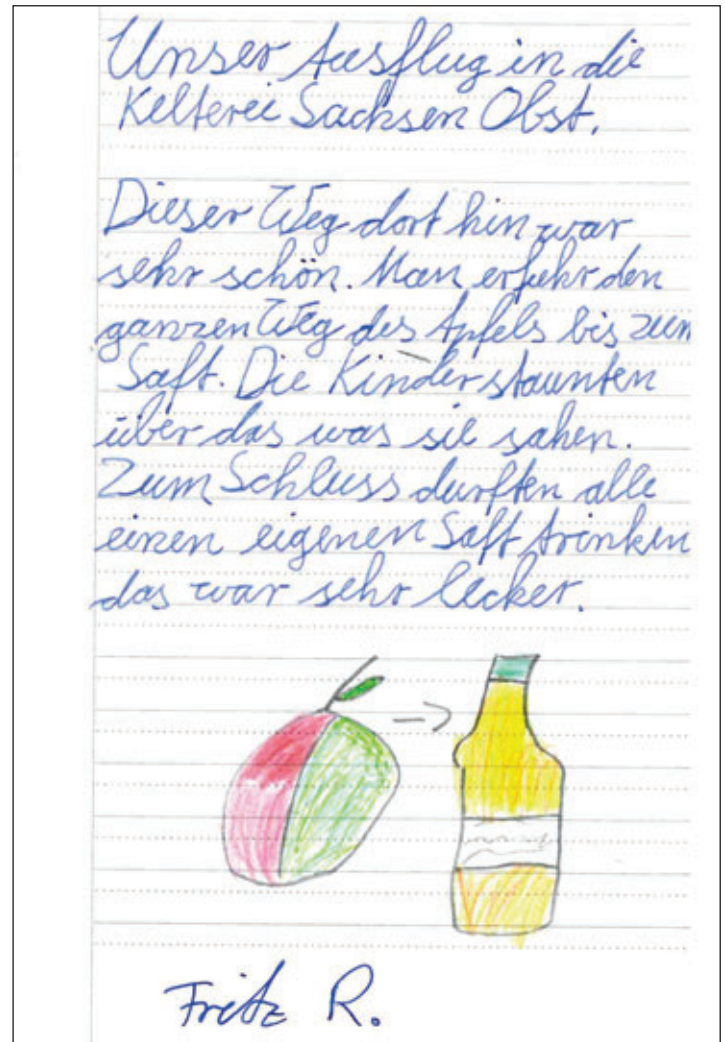 Unser Ausflug in die
Kelterei Sachsen Obst.
Dieser Weg dort hin war
sehr schön. Man erfuhr den
ganzen Weg des Apfels bis zum
Saft. Die Kinder staunten
über das was sie sahen.
Zum Schluss durften alle
einen eigenen Saft trinken
das war sehr lecker.
Fritz R.